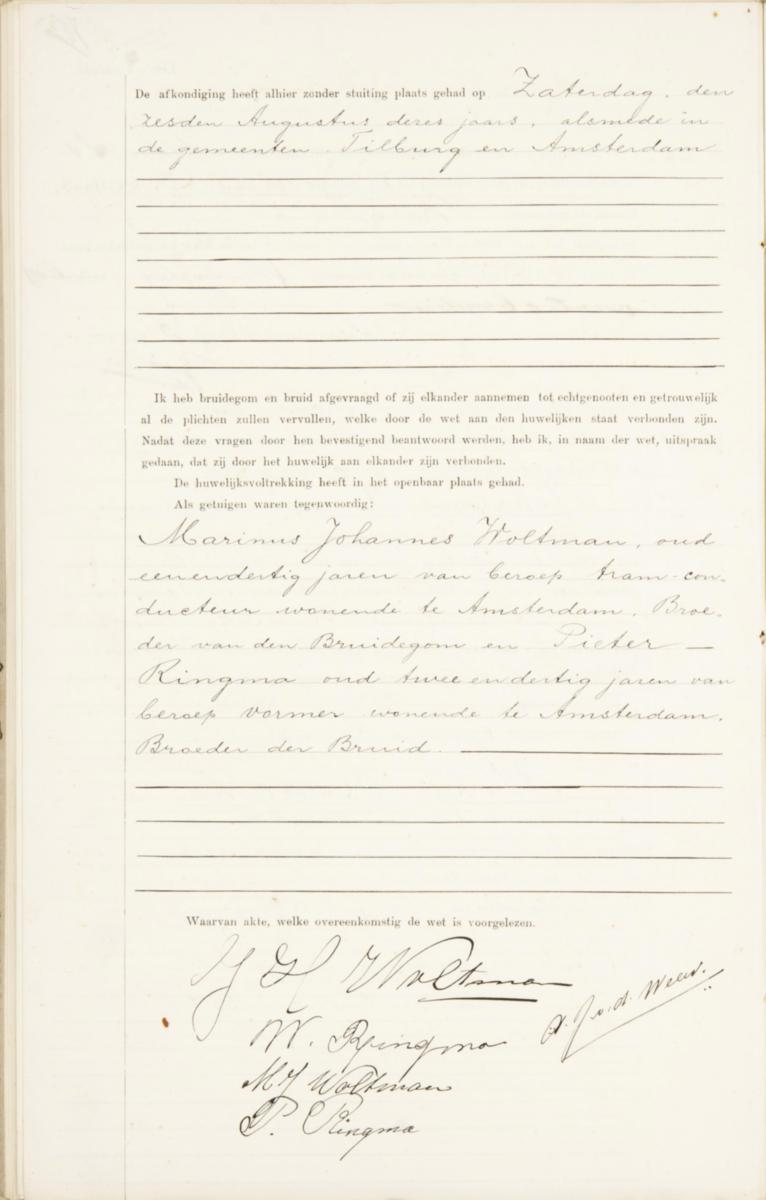 De afkondiging heeft alhier zonder stuiting plaats gehad op Zaterdag, den
zesden Augustus dezes jaars, alsmede in
de gemeenten Tilburg en Amsterdam
Ik heb bruidegom en bruid afgevraagd of zij elkander aannemen tot echtgenooten en getrouwelijk
al de plichten zullen vervullen, welke door de wet aan den huwelijken staat verbonden zijn.
Nadat deze vragen door hen bevestigend beantwoord werden, heb ik, in naam der wet, uitspraak
gedaan, dat zij door het huwelijk aan elkander zijn verbonden.
De huwelijksvoltrekking heeft in het openbaar plaats gehad.
Als getuigen waren tegenwoordig:
Marinus Johannes Woltman, oud
eenendertig jaren van beroep tram-con-
ducteur wonende te Amsterdam, Broe-
der van den Bruidegom en Pieter
Ringma oud twee en dertig jaren van
beroep vormer wonende te Amsterdam,
Broeder der Bruid.
Waarvan akte, welke overeenkomstig de wet is voorgelezen.
H Woltman
W. Ringma
M J Woltman
P. Ringma